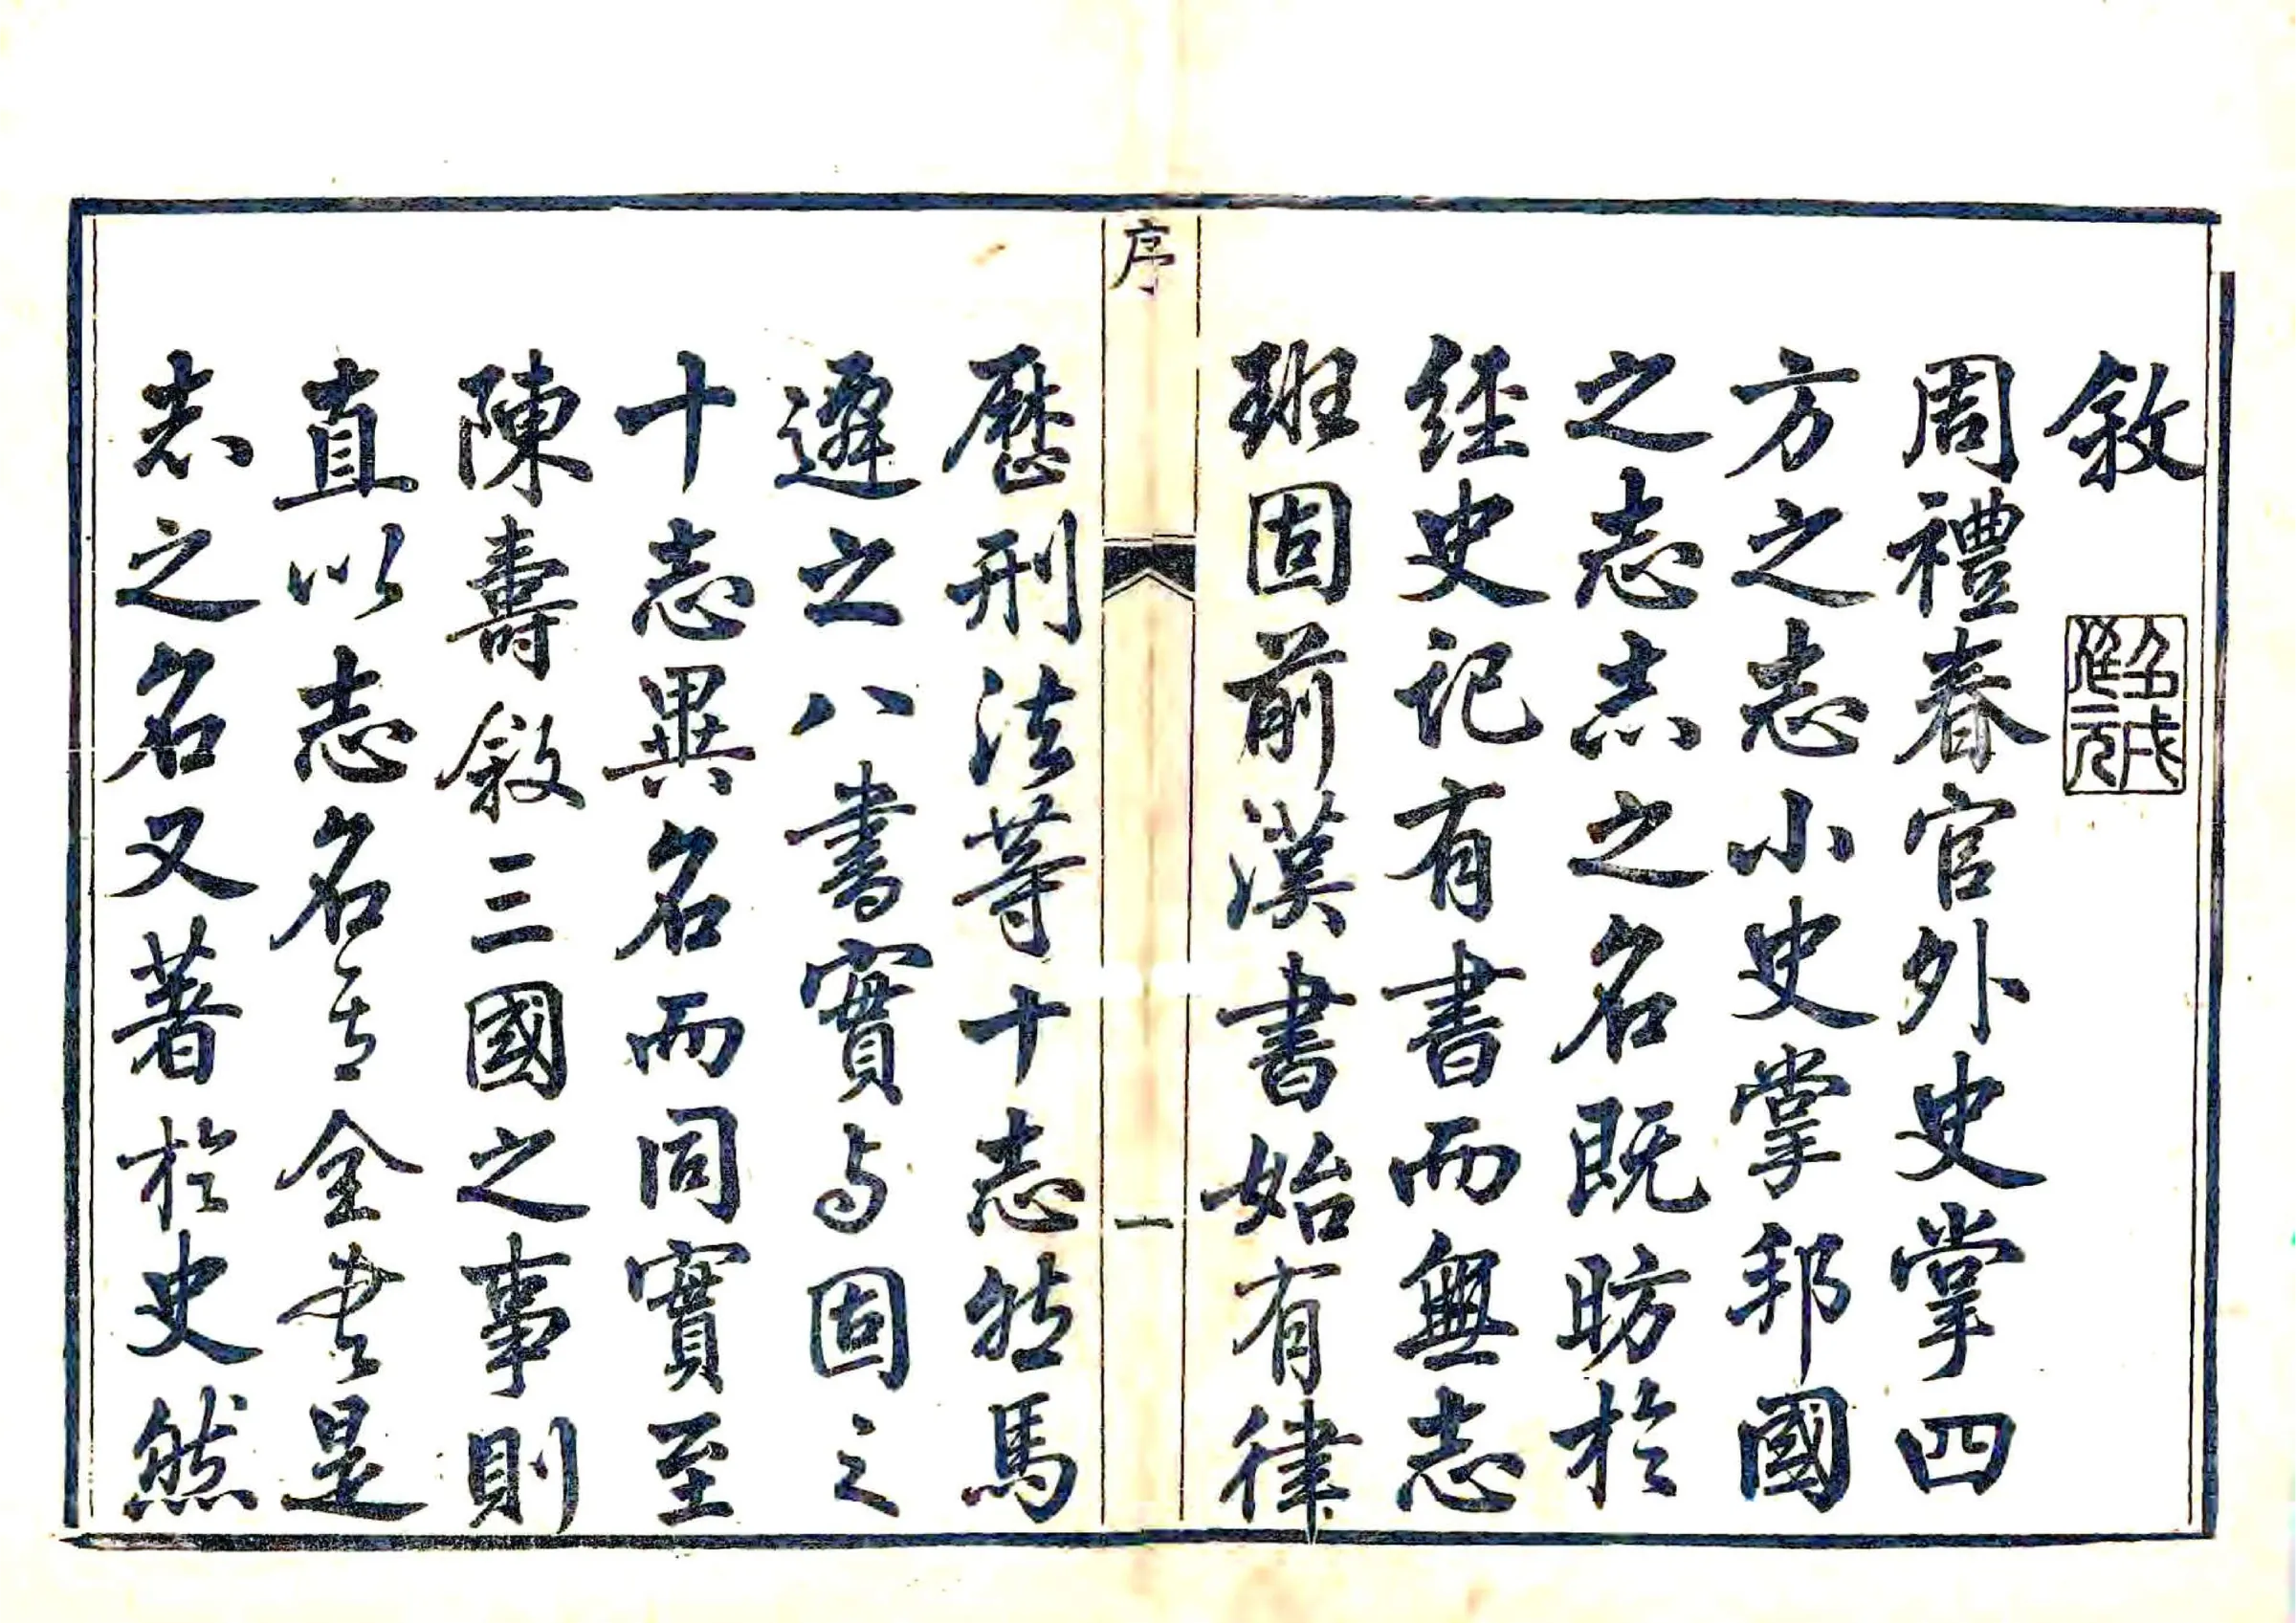 敘
周禮春官外史掌四
方之志小史掌邦國
之志志之名既昉於
經史記有書而無志
班固前漢書始有律
序
一
歷刑法等十志然馬
遷之八書實与固之
十志異名而同實至
陳壽敘三國之事則
直以志名其全書是
志之名又著於史然